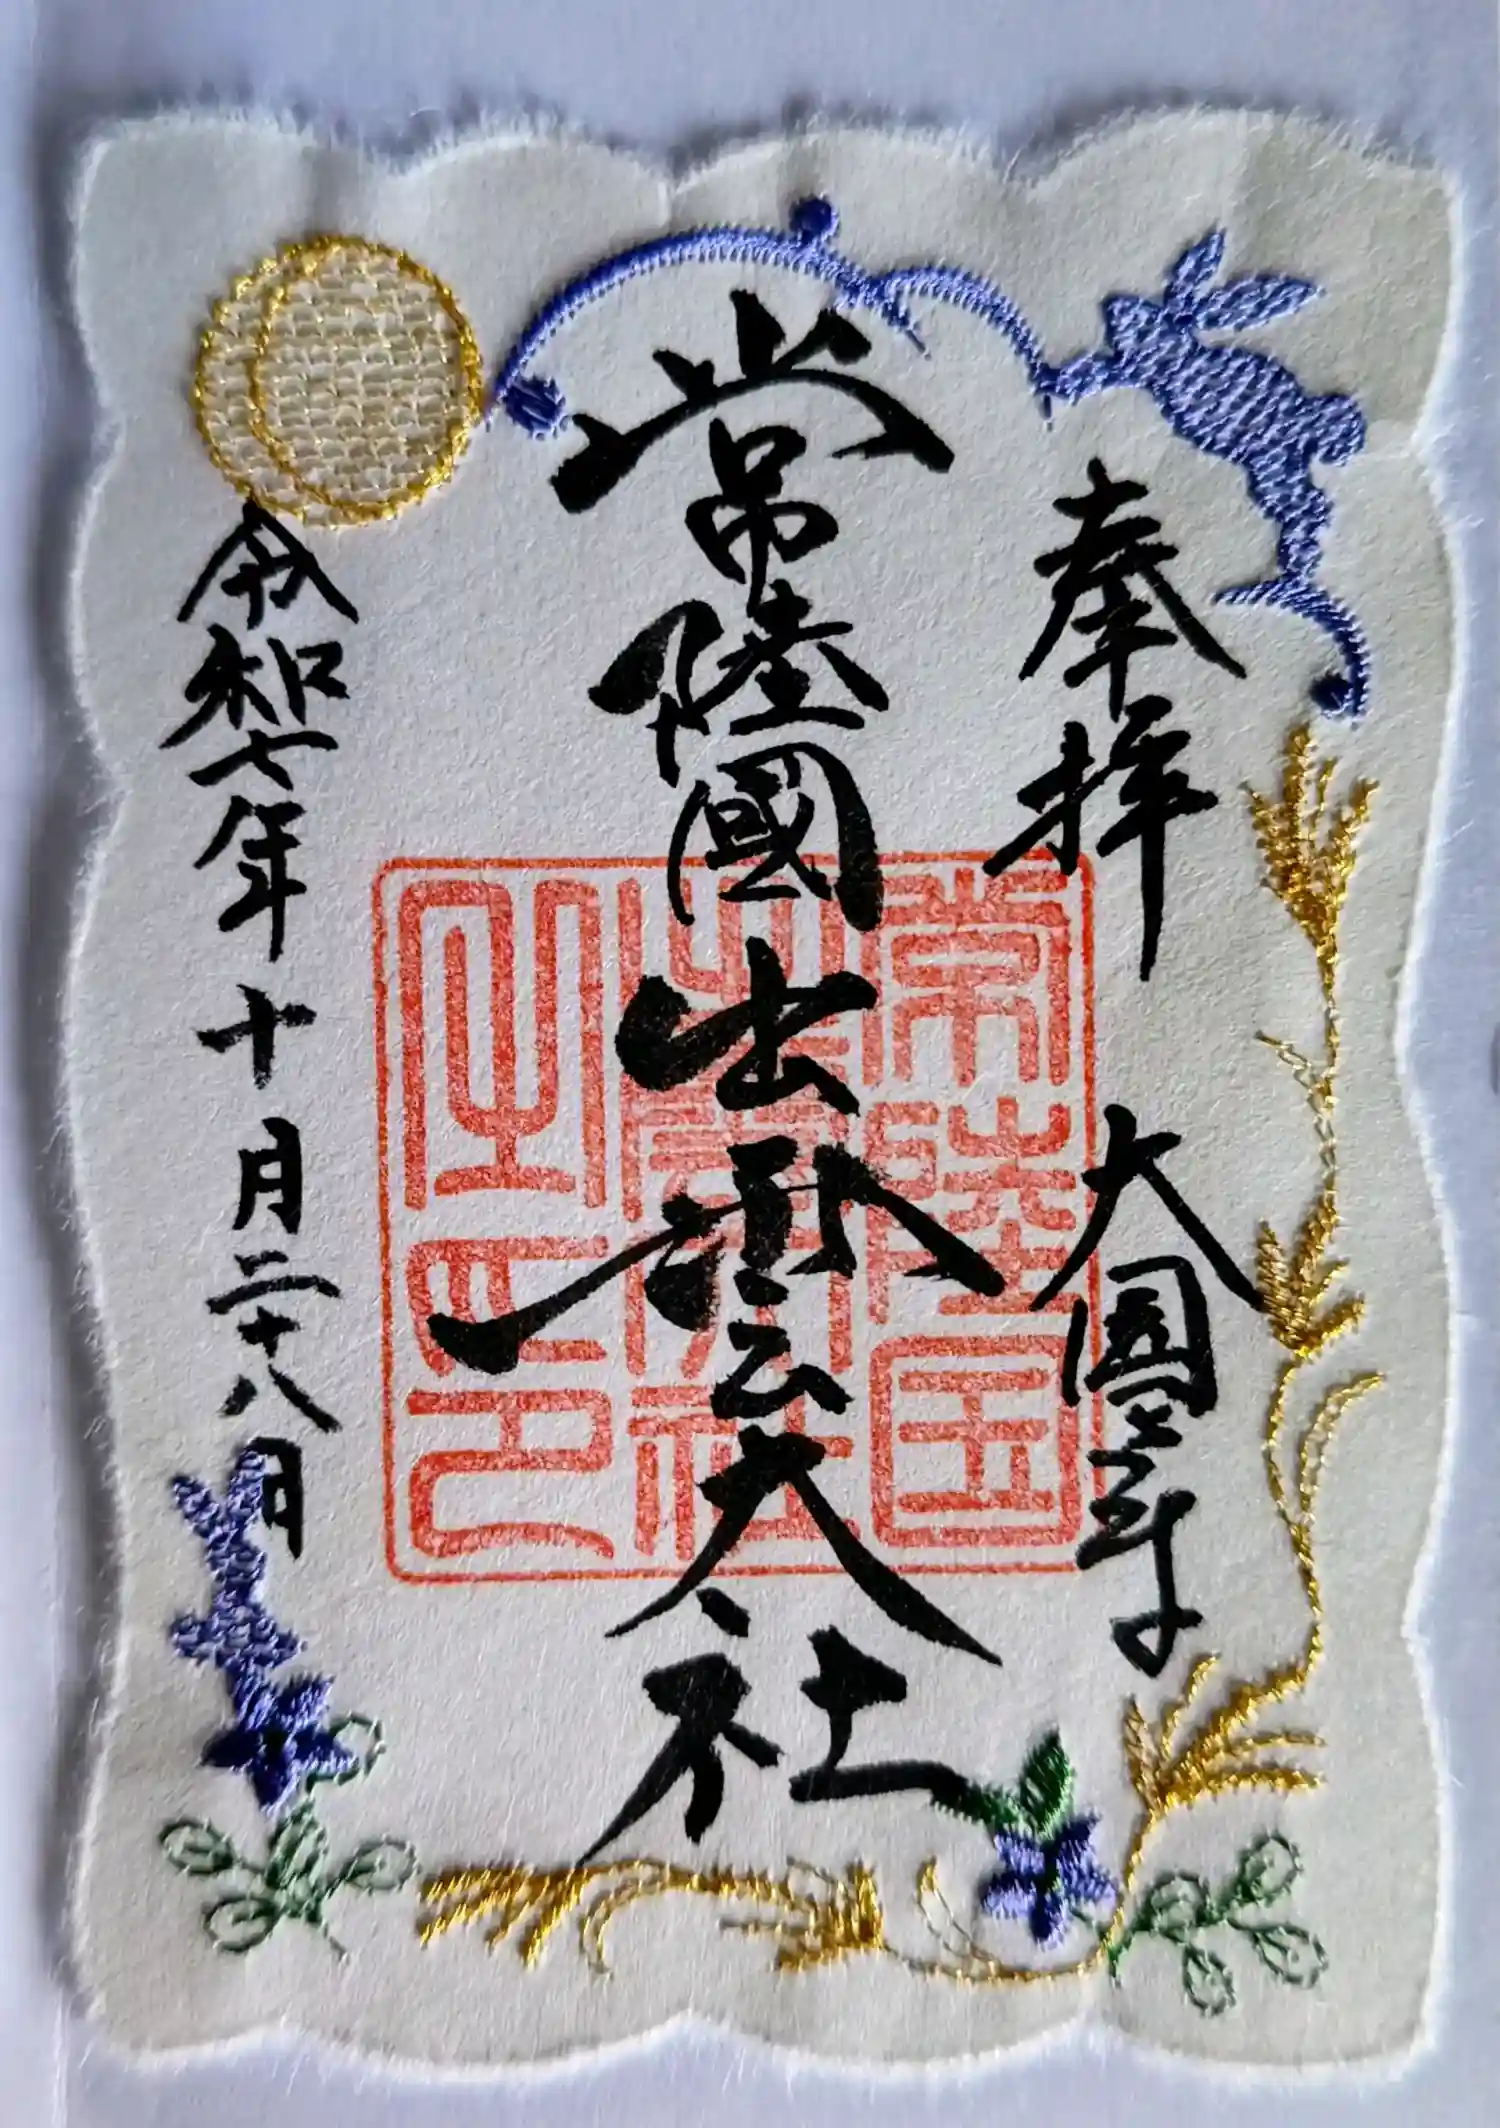 奉拝 大国
常陸國出雲大社
令和七年十月二十八日
常陸国
出雲大社
之印